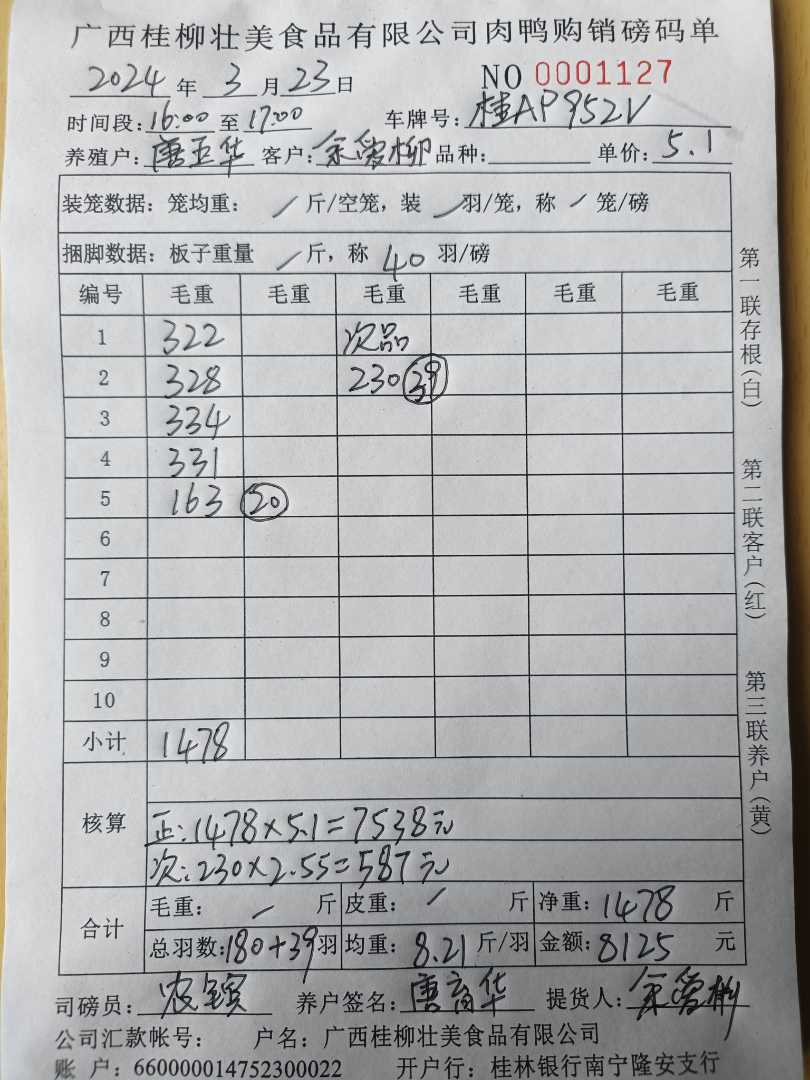 广西桂柳壮美食品有限公司肉鸭购销磅码单
2024 年 3 月 23 日 NO 0001127
时间段: 16:00 至 17:00 车牌号: 桂AP952V
养殖户: 唐 华 客户: 柳 品种: 单价: 5.1
装笼数据: 笼均重: / 斤/空笼, 装 / 羽/笼, 称 / 笼/磅
捆脚数据: 板子重量 / 斤, 称 40 羽/磅
编号 毛重 毛重 毛重 毛重 毛重 毛重
1 322 次品
2 328 230 39
3 334
4 331
5 163 20
6
7
8
9
10
小计 1478
核算
正: 1478×5.1=7538元
次: 230×2.55=587元
合计
毛重: / 斤 皮重: / 斤 净重: 1478 斤
总羽数: 180+39 羽 均重: 8.21 斤/羽 金额: 8125 元
司磅员: 农 养户签名: 唐 华 提货人:
公司汇款帐号: 户名: 广西桂柳壮美食品有限公司
账 户: 660000014752300022 开户行: 桂林银行南宁隆安支行
第一联存根(白)
第二联客户(红)
第三联养户(黄)